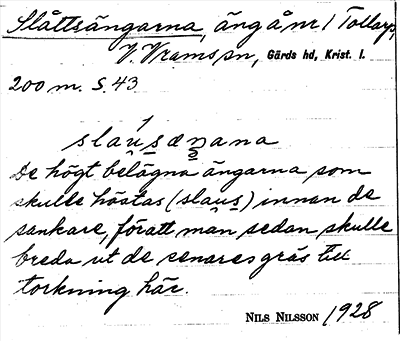 Slåttsängarna, äng å nr 1 Tollarp,
V. Vrams sn, Gärds hd, Krist. l.
200 m. S. 43
slau̯sæŋana
De högt belägna ängarna som
skulle höstas (slau̯s) innan de
sankare, föratt man sedan skulle
breda ut de senares gräs till
torkning här.
NILS NILSSON 1928